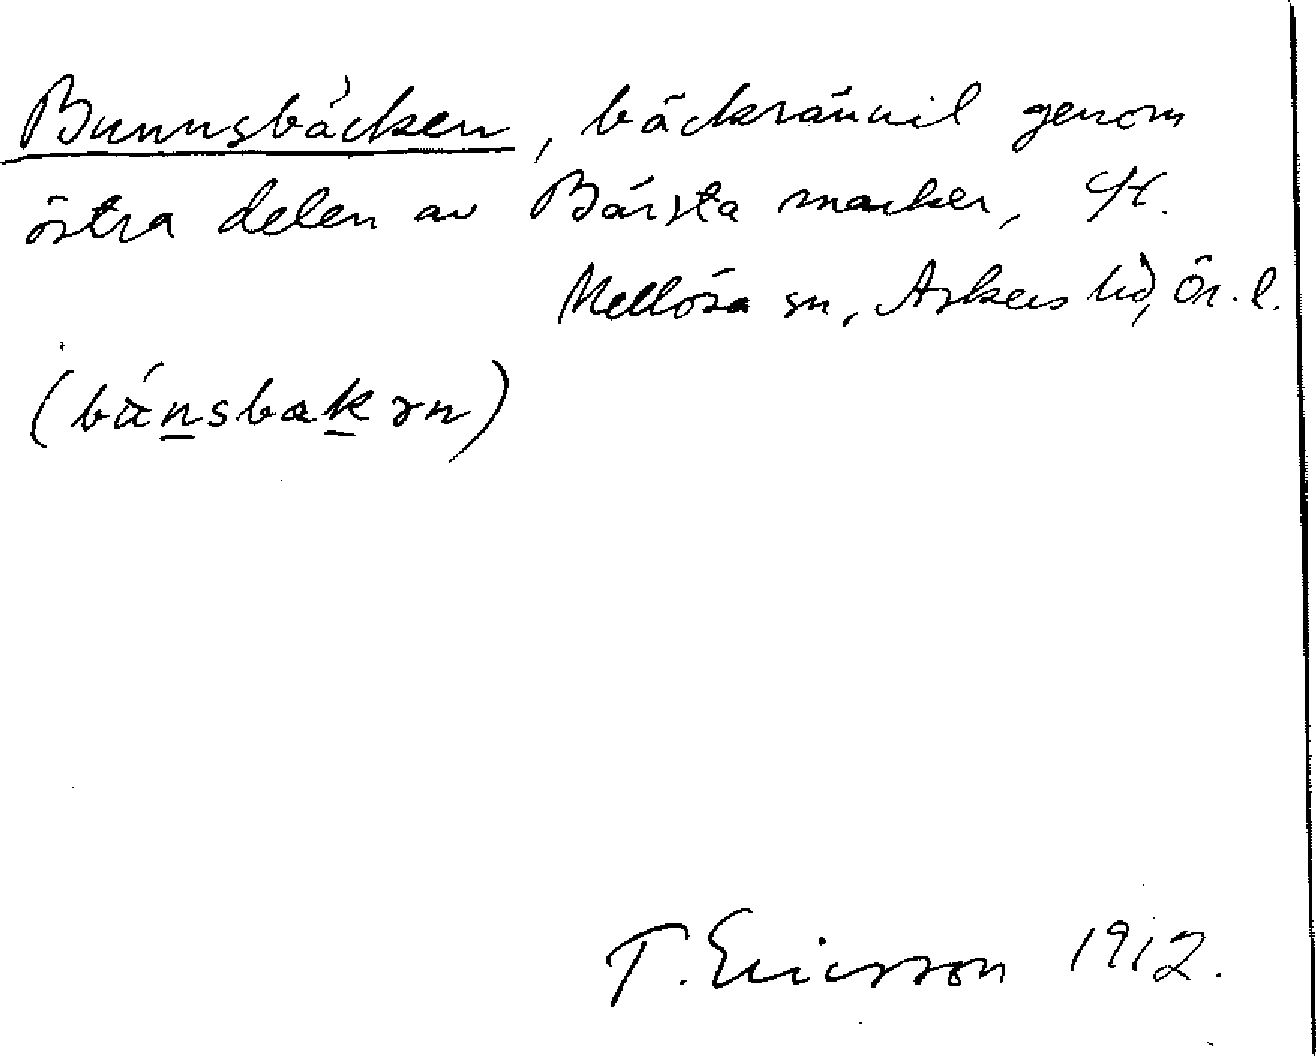 Bunnsbäcken, bäckrännil genom
östra delen av Bärsta marker, St.
Mellösa sn, Askers hd, Ör. l.
(bánsbakrn)
T. Ericsson 1912.